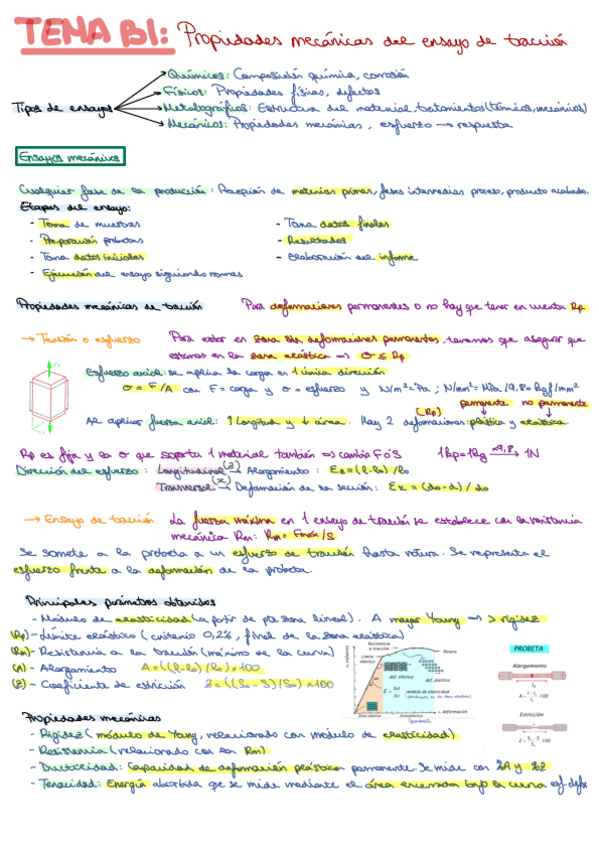 TEMA B1: Propiedades mecánicas del ensayo de tracción
Tipos de ensayos
Químicos: Composición química, corrosión
Físicos: Propiedades físicas, defectos
Metalográficos: Estructura del material, tratamientos (térmicos, mecánicos)
Mecánicos: Propiedades mecánicas, esfuerzo → respuesta
Ensayos mecánicos
Cualquier fase de la producción: Recepción de materias primas, fases intermedias proceso, producto acabado.
Etapas del ensayo:
- Toma de muestras
- Preparación probetas
- Toma datos iniciales
- Ejecución del ensayo siguiendo normas
- Toma datos finales
- Resultados
- Elaboración del informe
Propiedades mecánicas de tracción
Para deformaciones permanentes o no hay que tener en cuenta Rp
→ Tensión o esfuerzo
Para estar en zona sin deformaciones permanentes, tenemos que asegurar que
estemos en la zona elástica => σ ≤ Rp
Esfuerzo axial: se aplica la carga en 1 única dirección
σ = F/A con F = carga y σ = esfuerzo y N/m²=Pa ; N/mm²= MPa /9,8= Kgf/mm²
(Rp) permanente no permanente
Al aplicar fuerza axial: ↑ longitud y ↓ área. Hay 2 deformaciones: plástica y elástica
Rp es fija y es la σ que soporta 1 material también => cambia F ó S 1Kp=1Kg ×9,8→ 1N
Dirección del esfuerzo: Longitudinal (z) → Alargamiento: Ez=(l-lo)/lo
Transversal (x) → Deformación de la sección: Ex = (do-d)/do
→ Ensayo de tracción
La fuerza máxima en 1 ensayo de tracción se establece con la resistencia
mecánica Rm: Rm = Fmáx/S
Se somete a la probeta a un esfuerzo de tracción hasta rotura. Se representa el
esfuerzo frente a la deformación de la probeta.
Principales parámetros obtenidos
- Módulo de elasticidad (a partir de pte zona lineal). A mayor Young => > rigidez
(Rp) - Límite elástico (criterio 0,2%, final de la zona elástica)
(Rm) - Resistencia a la tracción (máximo de la curva)
(A) - Alargamiento A = ((l-lo)/lo)×100
(Z) - Coeficiente de estricción Z = ((So-S)/So)×100
Resistencia a tracción
Rotura
Límite elástico
def. elástica
def. plástica
módulo de elasticidad
ε, deformación
Zona elástica
Zona plástica
PROBETA
Alargamiento
Estricción
Propiedades mecánicas
- Rigidez (módulo de Young, relacionado con módulo de elasticidad)
- Resistencia (relacionado con la Rm)
- Ductilidad: Capacidad de deformación plástica permanente. Se mide con %A y %Z
- Tenacidad: Energía absorbida que se mide mediante el área encerrada bajo la curva